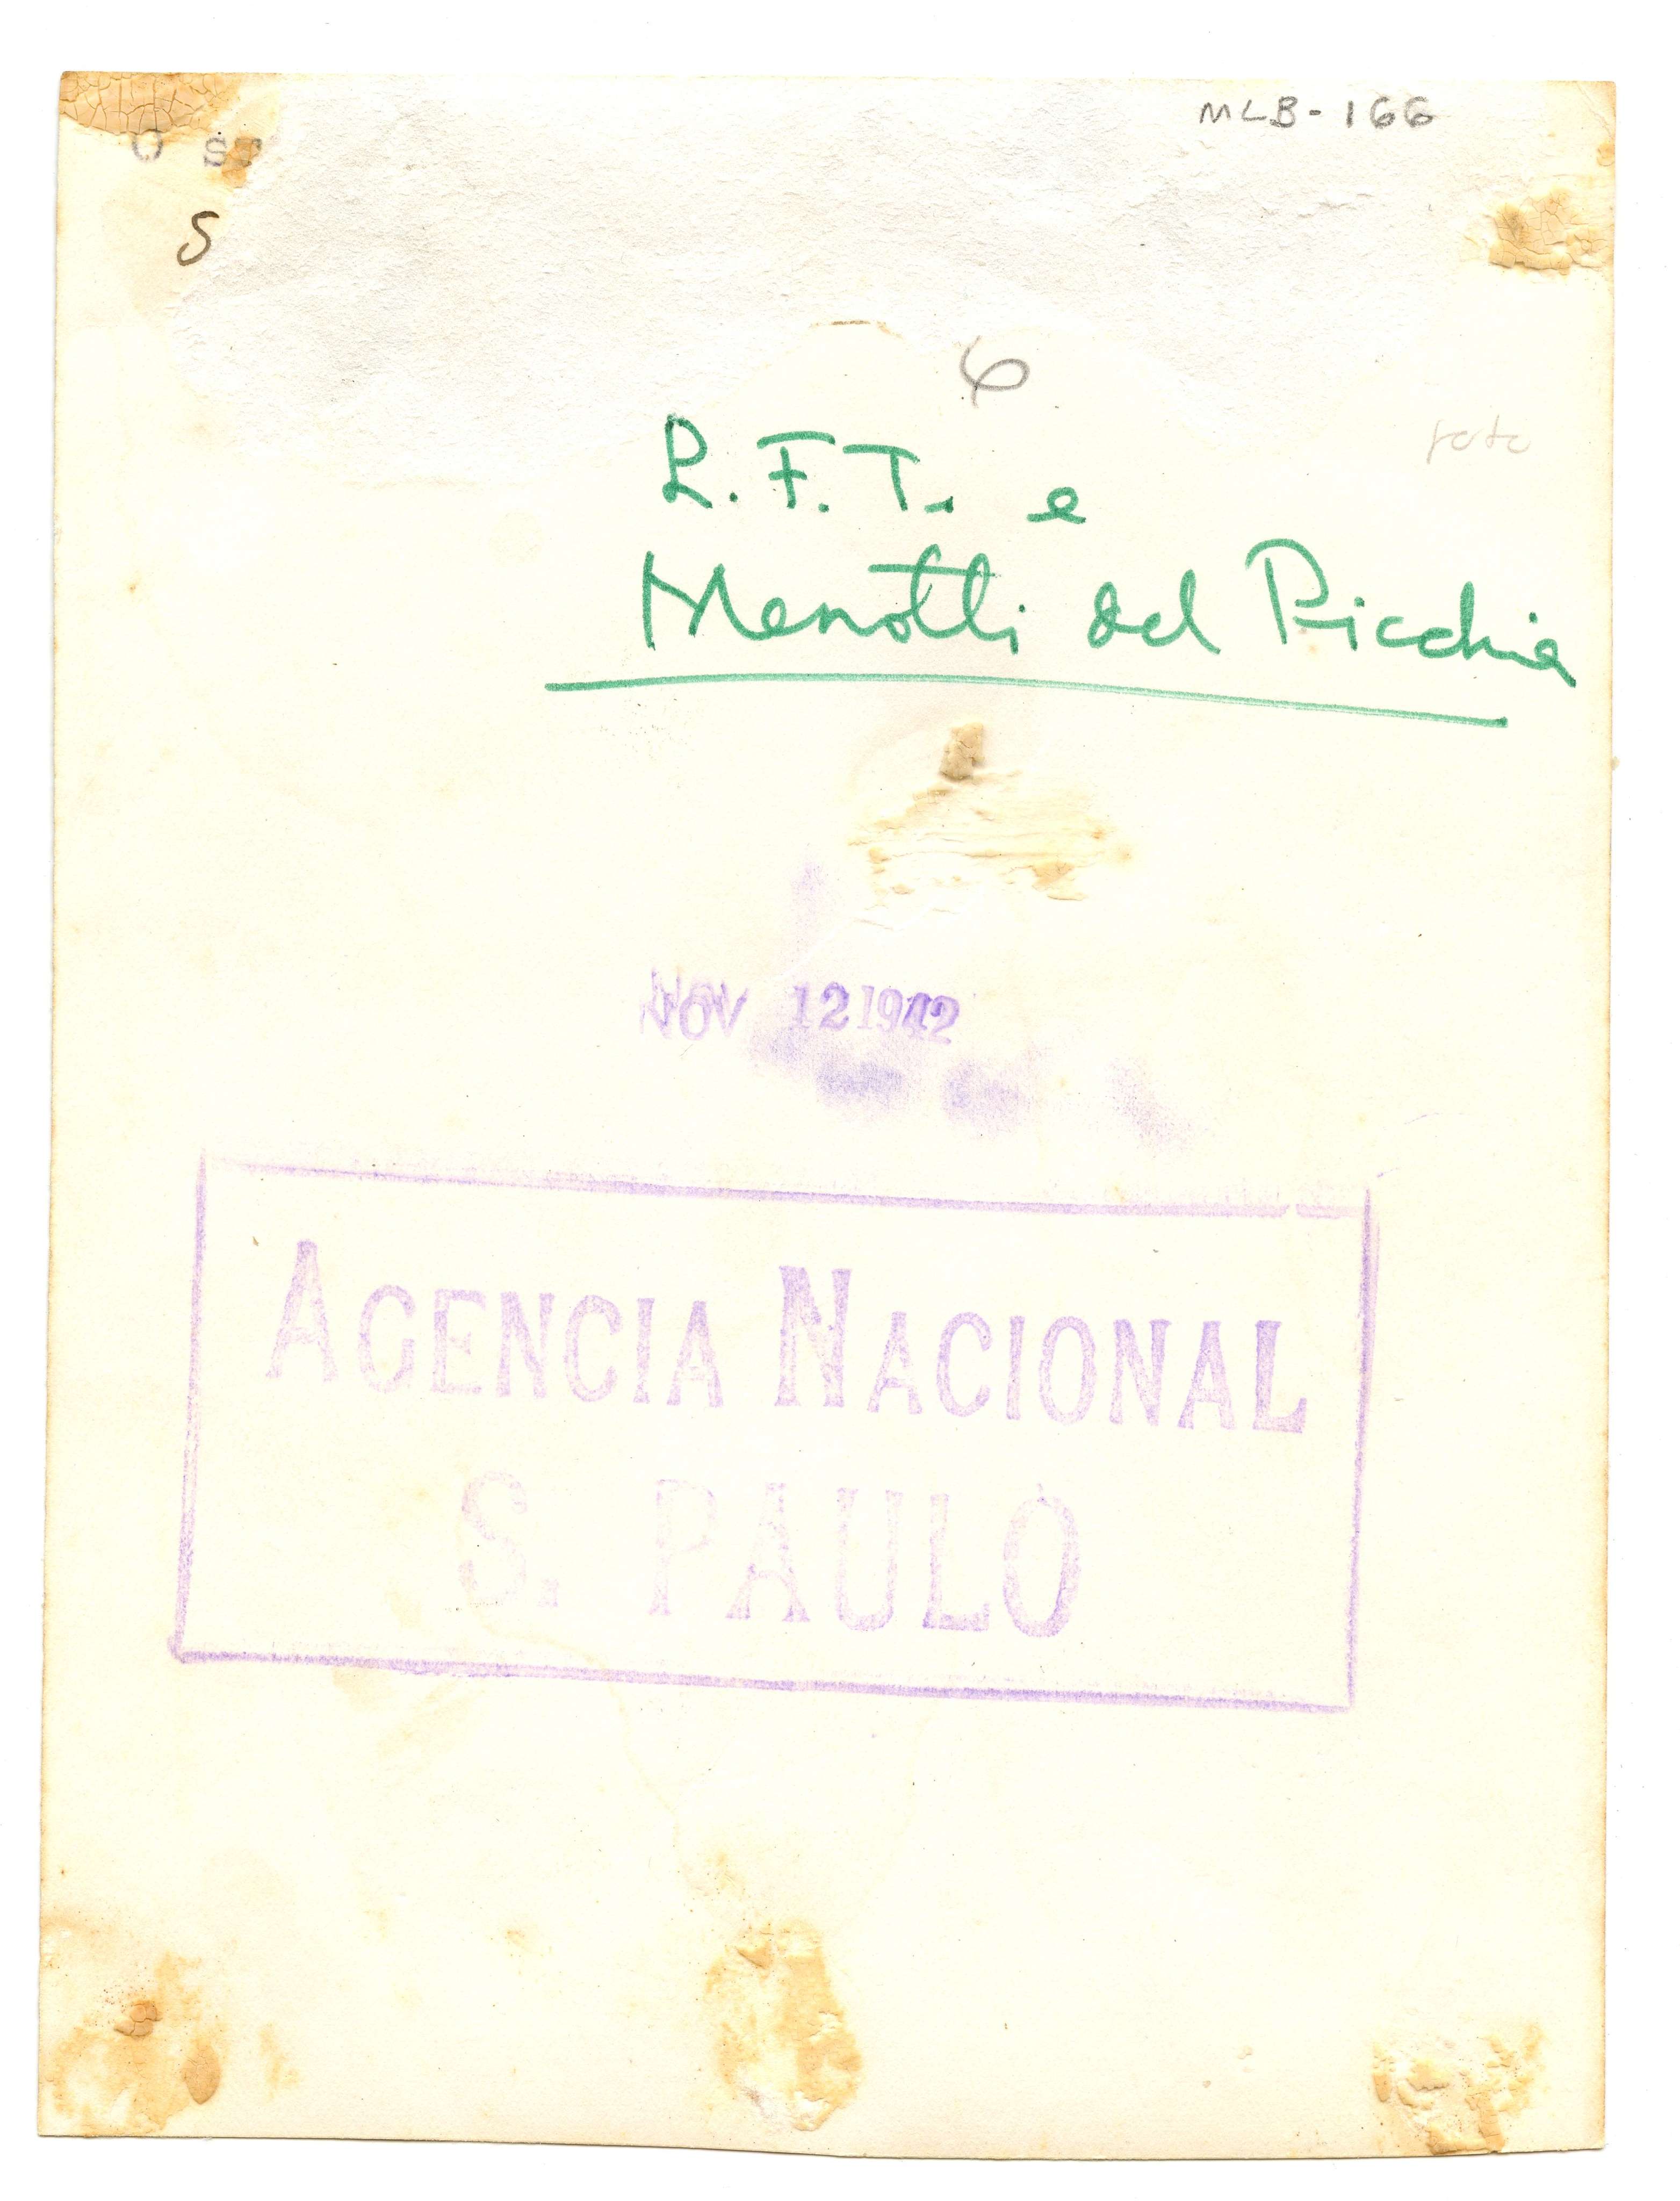 MLB-166
O ST
S
6
L.F.T. e
Menotti del Picchia
NOV 12 1942
AGENCIA NACIONAL
S. PAULO